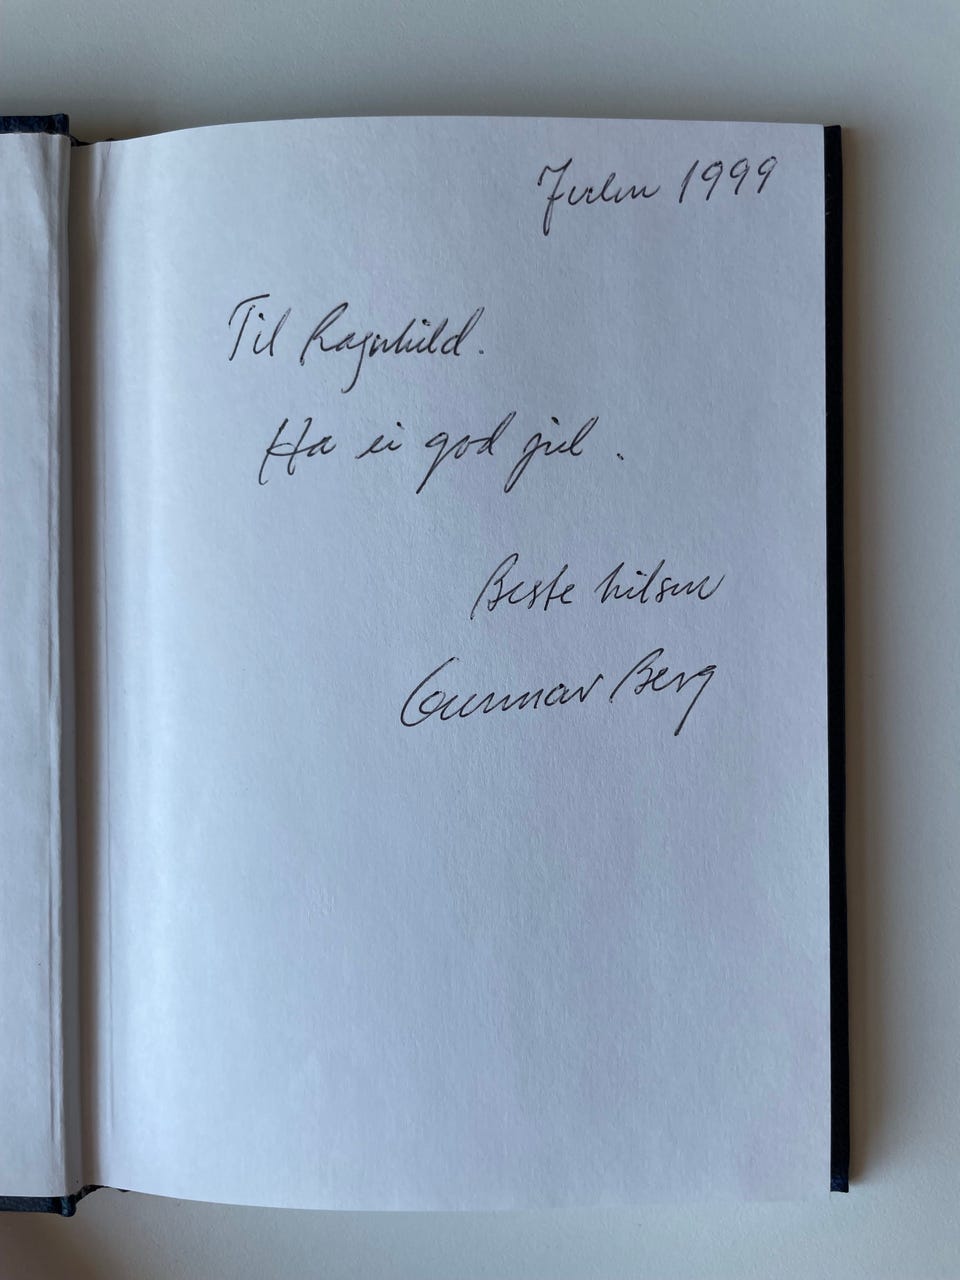 Julen 1999
Til Ragnhild.
Ha ei god jul.
Beste hilsen
Gunnar Berg